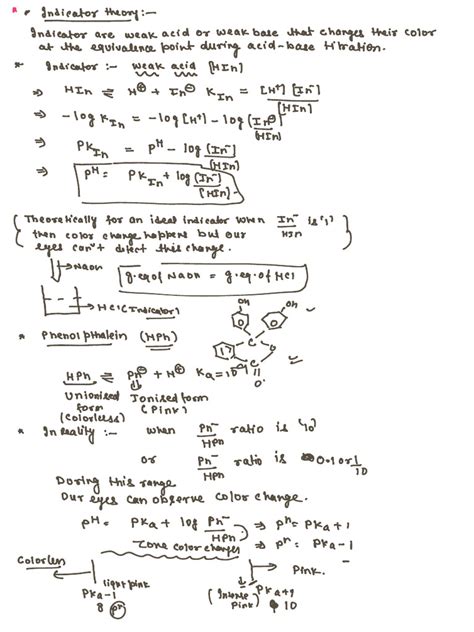 * • Indicator theory:-
Indicator are weak acid or weak base that changes their color
at the equivalence point during acid-base titration.
* Indicator :- weak acid [HIn]
⇒ HIn ⇌ H⊕ + In⊖ K_In = [H⁺] [In⁻] / [HIn]
⇒ -log K_In = -log [H⁺] - log [In⊖] / [HIn]
⇒ PK_In = pH - log [In⁻] / [HIn]
⇒ pH = PK_In + log [In⁻] / [HIn]
{ Theoretically for an ideal indicator when In⁻/HIn is '1'
then color change happens but our
eyes can't detect this change. }
→ NaOH
g.eq of NaOH = g.eq. of HCl
→ HCl (Indicator)
OH OH
C O
C
O
* Phenolpthalein (HPh)
HPh ⇌ Ph⊖ + H⊕ Ka = 10
Unionised Ionised form
form (Pink)
(Colorless)
* In reality :- when Ph⁻/HPh ratio is '10'
or Ph⁻/HPh ratio is 0.1 or 1/10
During this range
Our eyes can observe color change.
pH = PKa + log Ph⁻/HPh ⇒ pH = PKa + 1
Zone color changes ⇒ pH = PKa - 1
Colorless Pink.
light pink
PKa-1 (Intense Pink) PKa+1
8 pH 10